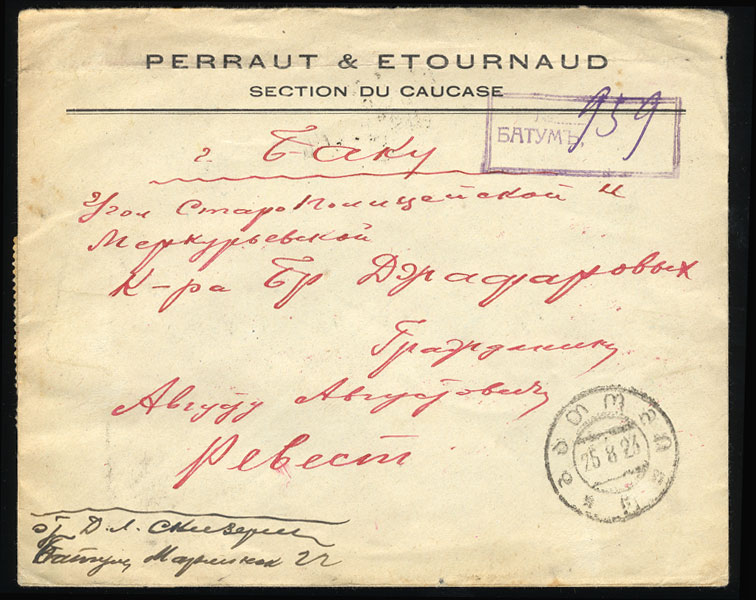 PERRAUT & ETOURNAUD
SECTION DU CAUCASE
БАТУМЪ. 959
г. Баку
Угол СтароПолицейской и
Меркурьевской
К-ра Бр Джафаровых
Гражданину
Августу Августовичу
Ревест
25 8 23
от Д. Л.
Батум 22